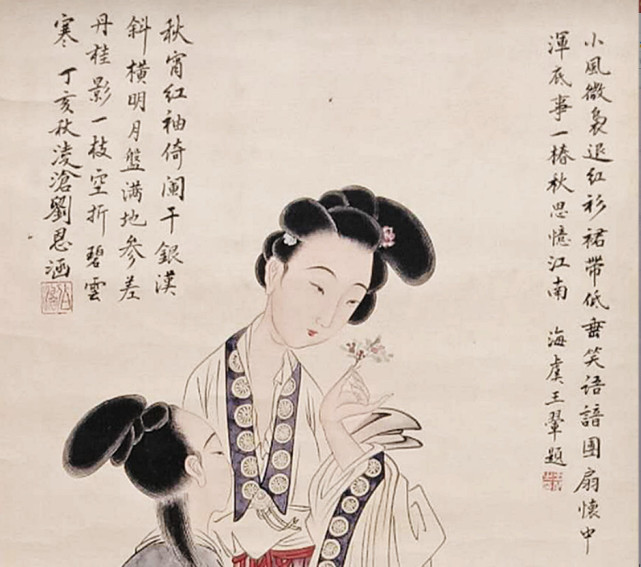 小風微裊退紅衫裙帶低垂笑語諳團扇懷中
渾底事一樁秋思憶江南 海虞王翬題
秋宵紅袖倚闌干銀漢
斜橫明月盤滿地參差
丹桂影一枝空折碧雲
寒 丁亥秋淩滄劉恩涵